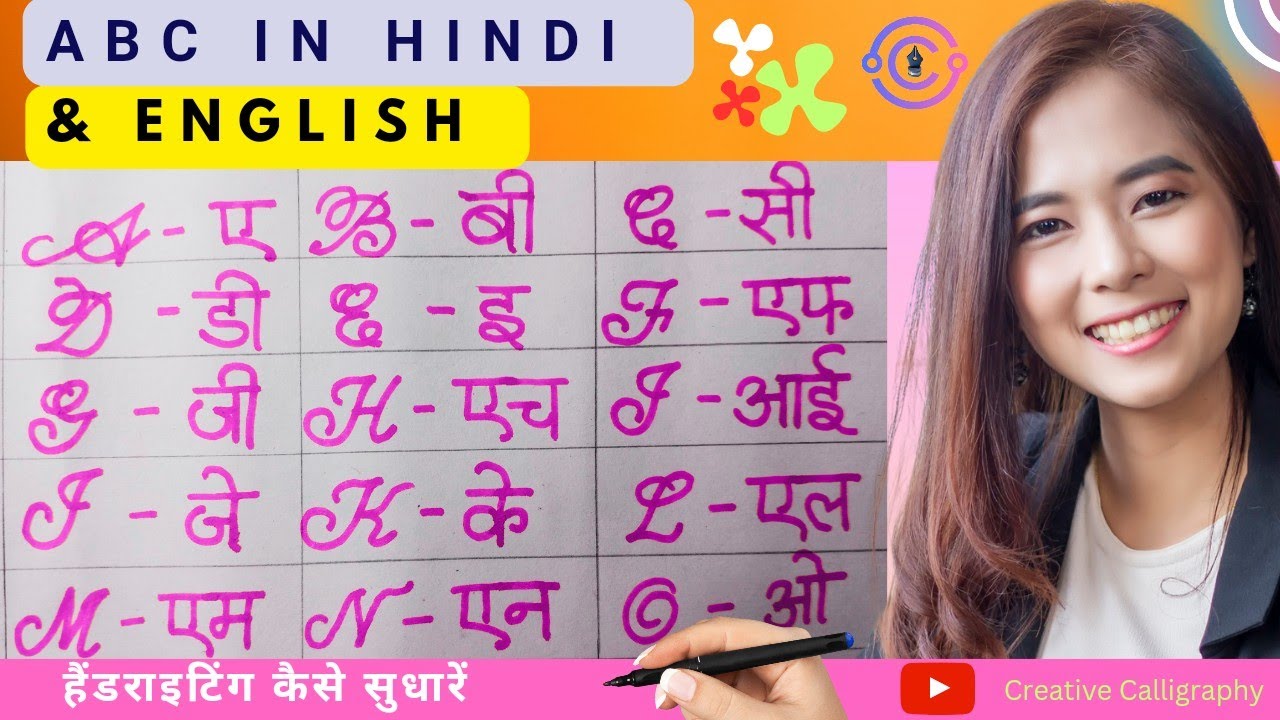 ABC IN HINDI
& ENGLISH
A - ए B - बी C - सी
D - डी E - इ F - एफ
G - जी H - एच I - आई
J - जे K - के L - एल
M - एम N - एन O - ओ
हैंडराइटिंग कैसे सुधारें
Creative Calligraphy